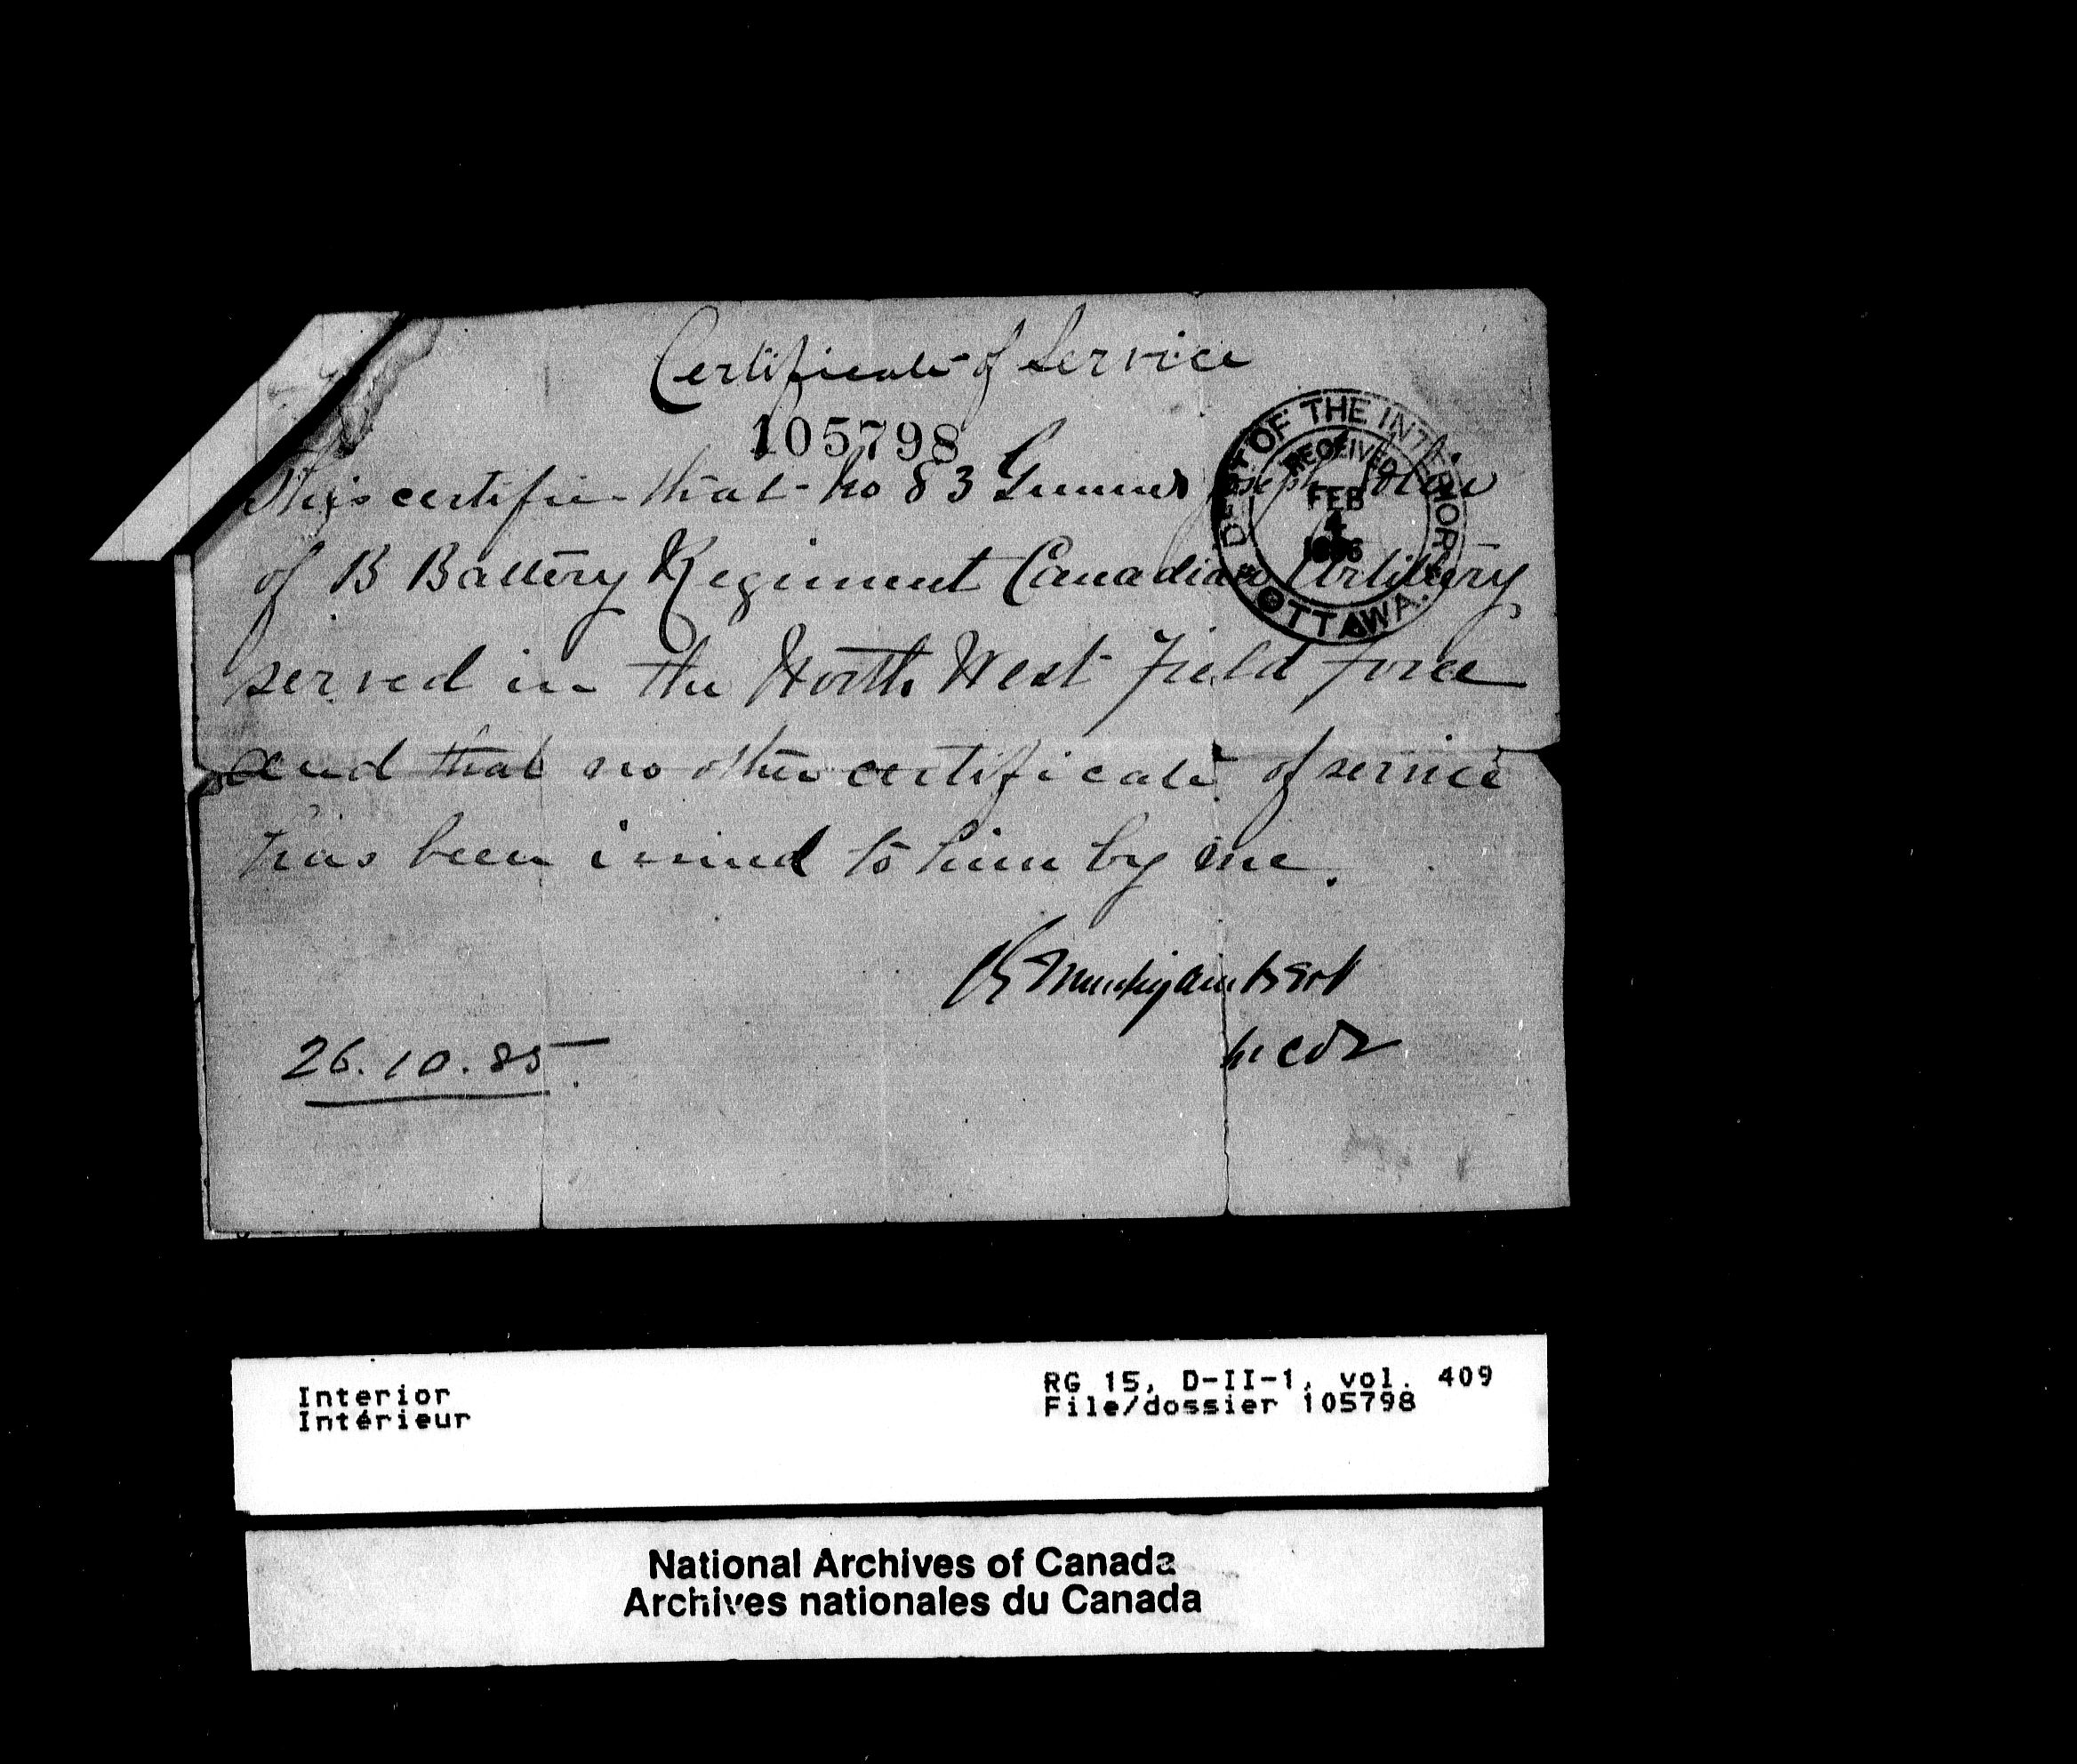 Certificate of Service
105798
This certifies that No 83 Gunner Joseph
of B Battery Regiment Canadian Artillery,
served in the North West Field Force
and that no other certificate of service
has been issued to him by me.
26.10.85.
DEPT OF THE INTERIOR
RECEIVED
FEB
4
1886
OTTAWA.
Interior
Intérieur
RG 15, D-II-1, vol. 409
File/dossier 105798
National Archives of Canada
Archives nationales du Canada